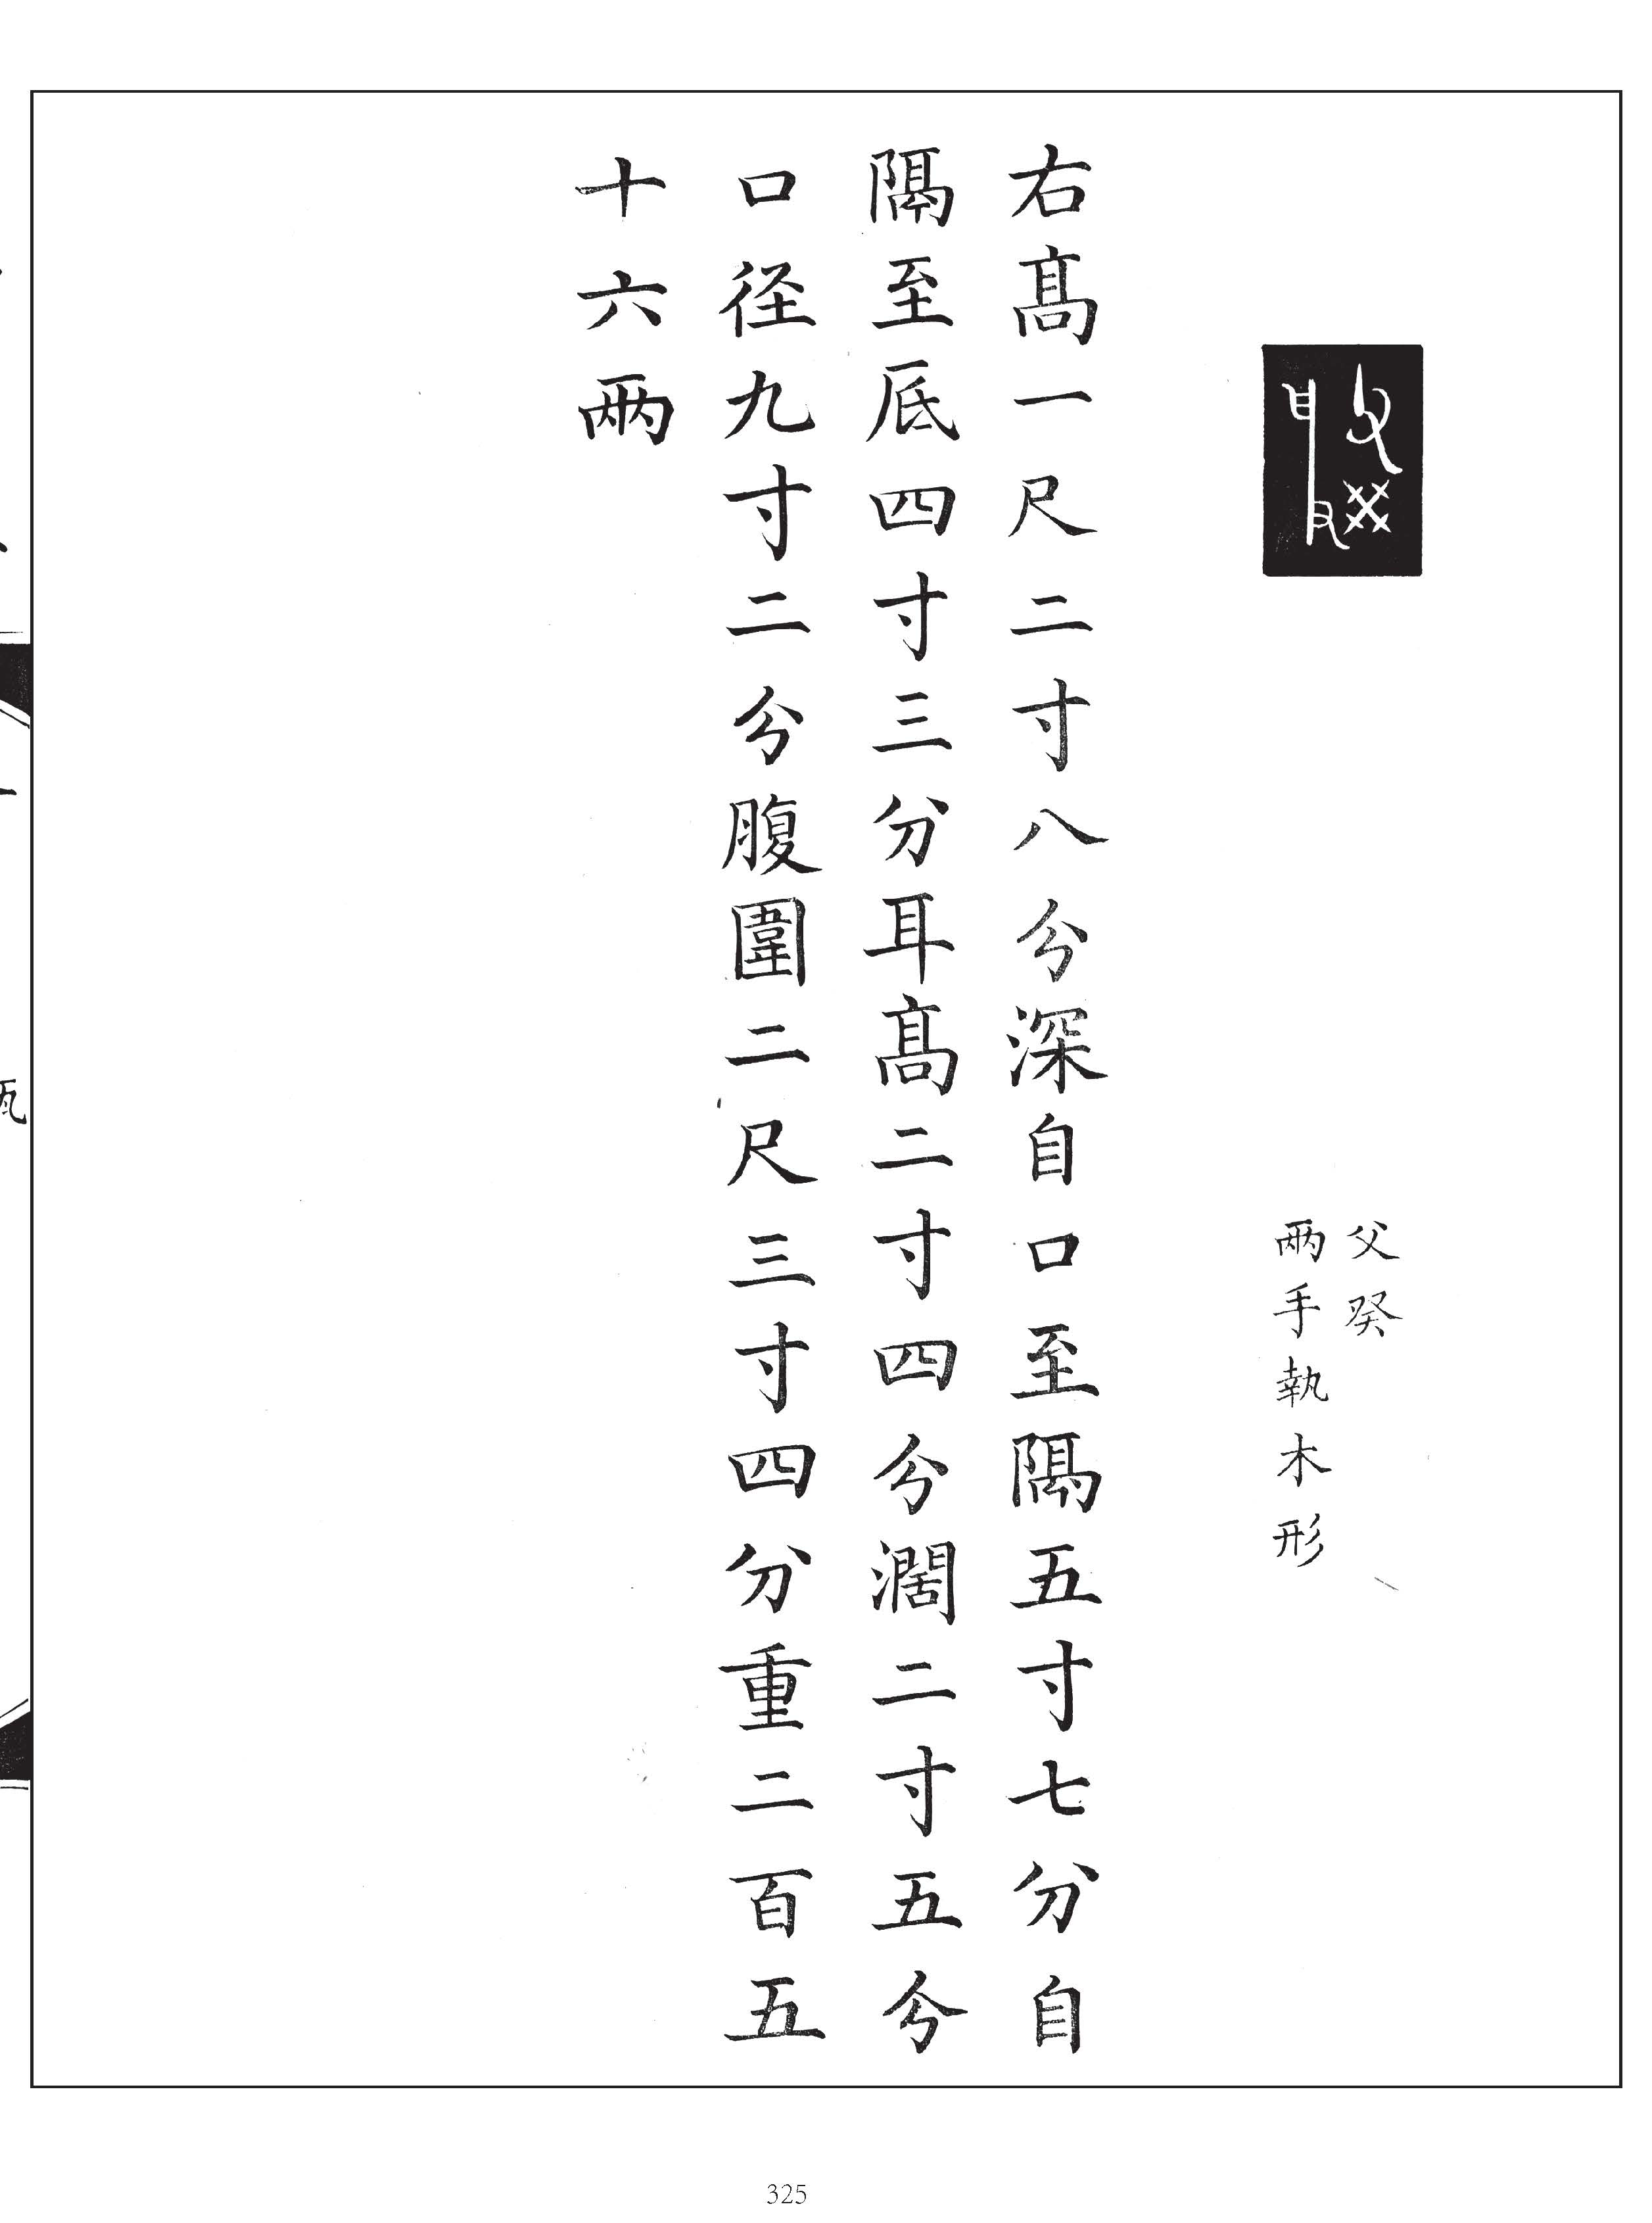 父癸
兩手執木形
右髙一尺二寸八分深自口至隔五寸七分自
隔至底四寸三分耳髙二寸四分濶二寸五分
口径九寸二分腹圍二尺三寸四分重二百五
十六兩
325